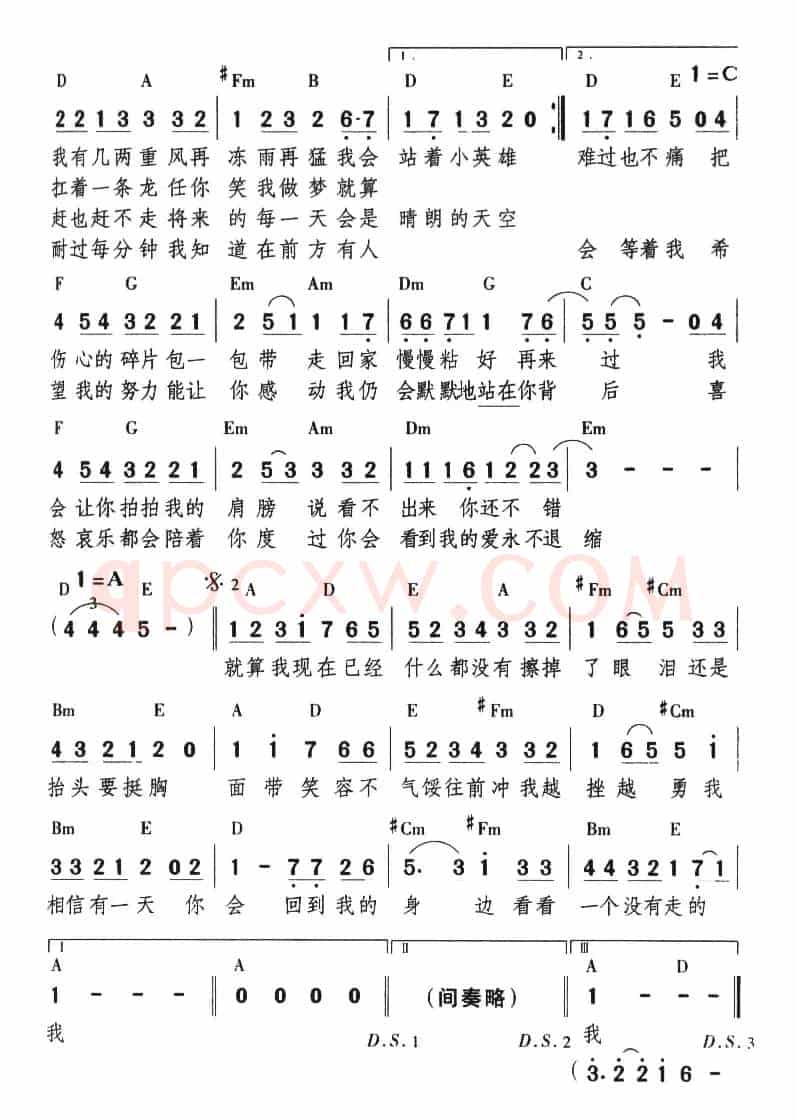 1. 2.
D A #Fm B D E D E 1=C
2 2 1 3 3 3 3 2 | 1 2 3 2 6·7 | 1 7 1 3 2 0 :| 1 7 1 6 5 0 4
我有几两重风再 冻雨再猛我会 站着小英雄 难过也不痛 把
扛着一条龙任你 笑我做梦就算
赶也赶不走将来 的每一天会是 晴朗的天空
耐过每分钟我知 道在前方有人 会 等着我 希
F G Em Am Dm G C
4 5 4 3 2 2 1 | 2 5 1 1 1 7 | 6 6 7 1 1 7 6 | 5 5 5 - 0 4
伤心的碎片包一 包带 走回家 慢慢粘 好 再来 过 我
望我的努力能让 你感 动我仍 会默默地站在你背 后 喜
F G Em Am Dm Em
4 5 4 3 2 2 1 | 2 5 3 3 3 2 | 1 1 1 6 1 2 2 3 | 3 - - -
会让你拍拍我的 肩膀 说看不 出来 你还不 错
怒哀乐都会陪着 你度 过你会 看到我的爱永不退 缩
D 1=A E 𝄋2 A D E A #Fm #Cm
3
( 4 4 4 5 - ) ‖ 1 2 3 1 7 6 5 | 5 2 3 4 3 3 2 | 1 6 5 5 3 3
就算我现在已经 什么都没有擦掉 了眼 泪还是
Bm E A D E #Fm D #Cm
4 3 2 1 2 0 | 1 1 7 6 6 | 5 2 3 4 3 3 2 | 1 6 5 5 1
抬头要挺胸 面带笑容不 气馁往前冲我越 挫越 勇我
Bm E D #Cm #Fm Bm E
3 3 2 1 2 0 2 | 1 - 7 7 2 6 | 5. 3 1 3 3 | 4 4 3 2 1 7 1
相信有一天 你 会 回到我的 身 边看看 一个没有走的
I II III
A A A D
1 - - - ‖ 0 0 0 0 ‖ (间奏略) ‖ 1 - - - ‖
我 D.S.1 D.S.2 我 D.S.3
( 3. 2 2 1 6 -
qpcxw.com